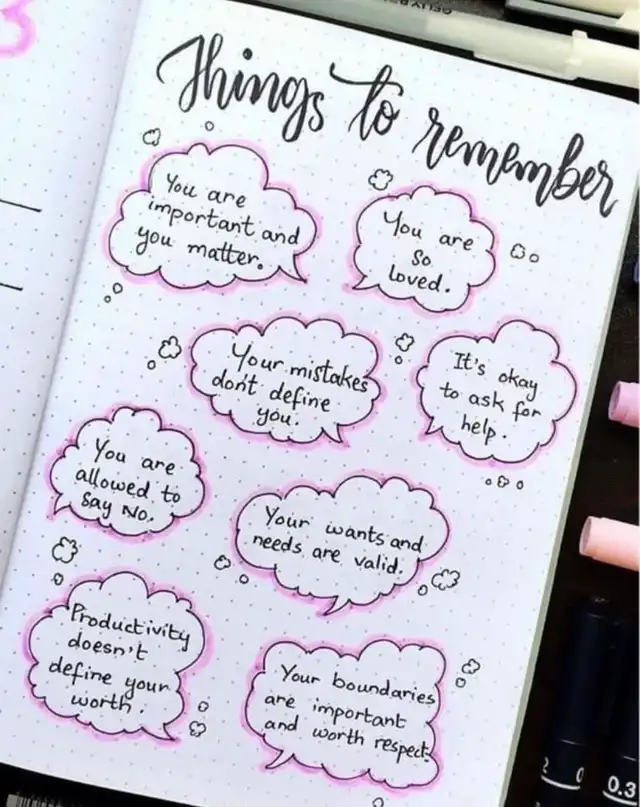 Things to remember
You are
important and
you matter.
You are
so
loved.
Your mistakes
don't define
you.
It's okay
to ask for
help.
You are
allowed to
say NO.
Your wants and
needs are valid.
Productivity
doesn't
define your
worth.
Your boundaries
are important
and worth respect.
3
0.3